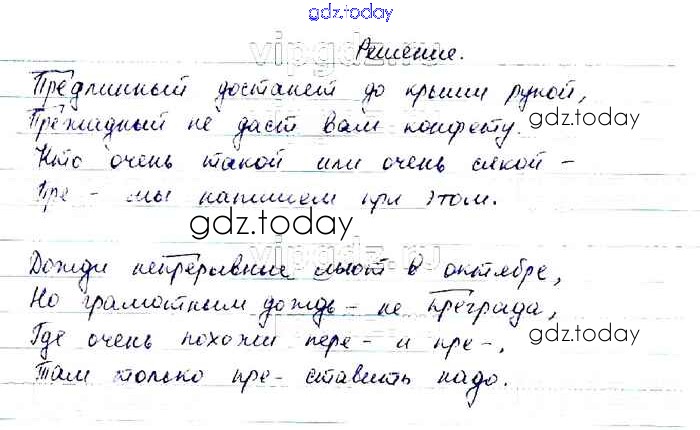 gdz.today
vipgdz.ru
Решение.
Предлинный достанет до крыши рукой,
Прежадный не даст вам конфету.
gdz.today
Кто очень такой или очень сякой -
Пре- мы напишем при этом.
gdz.today
vipgdz.ru
Дожди непрерывные льют в октябре,
Но грамотным дождь - не преграда,
gdz.today
Где очень похожи пере- и пре-,
Там только пре- ставить надо.